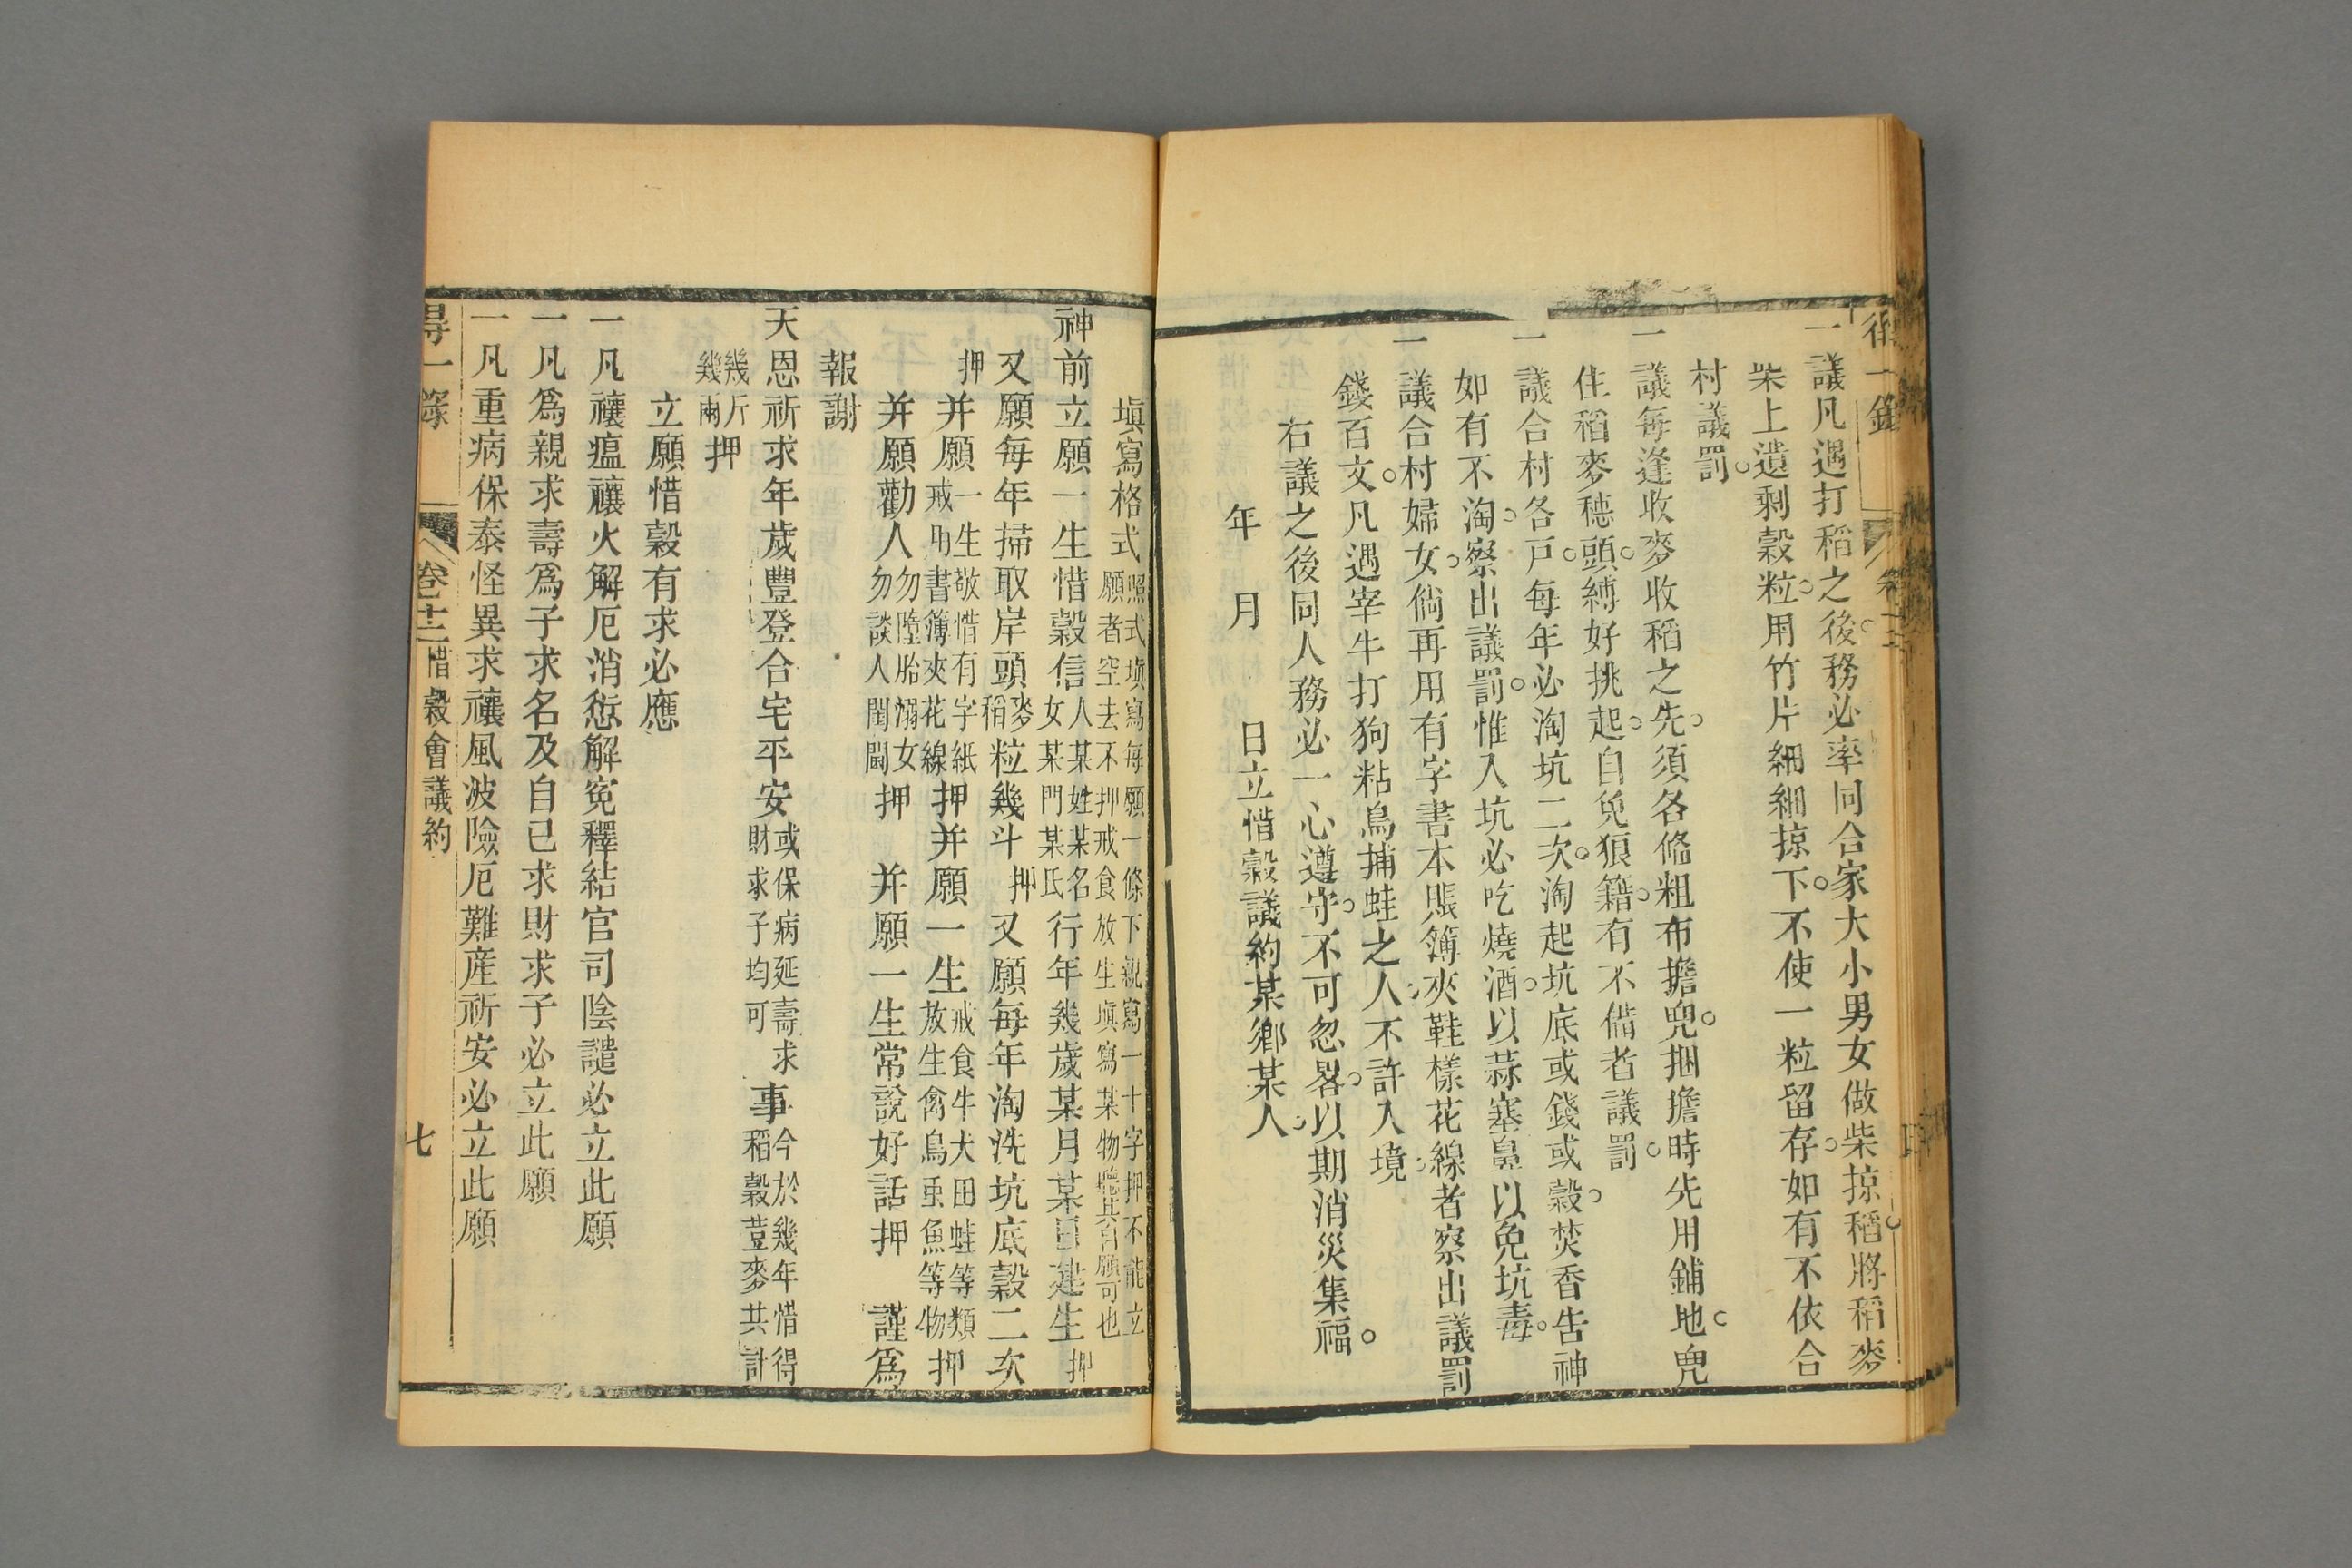 一議凡遇打稻之後務必率同合家大小男女做柴掠稻將稻麥
柴上遺剩穀粒用竹片細細掠下不使一粒留存如有不依合
村議罰
一議每逢收麥收稻之先須各備粗布擔兜捆擔時先用鋪地兜
住稻麥穗頭縛好挑起自免狼籍有不備者議罰
一議合村各戸每年必淘坑二次淘起坑底或錢或穀焚香告神
如有不淘察出議罰惟入坑必吃燒酒以蒜塞鼻以免坑毒
一議合村婦女倘再用有字書本賬簿夾鞋樣花線者察出議罰
錢百文凡遇宰牛打狗粘鳥捕蛙之人不許入境
右議之後同人務必一心遵守不可忽畧以期消災集福
年 月 日立惜穀議約某鄉某人
塡寫格式照式塡寫每願一條下親寫一十字押不能立
願者空去不押戒食放生塡寫某物聽其自願可也
神前立願一生惜穀信人某姓某名
女某門某氏行年幾歲某月某日建生押
又願每年掃取岸頭麥
稻粒幾斗押又願每年淘洗坑底穀二次
押并願一生敬惜有字紙
戒用書簿夾花線押并願一生戒食牛犬田蛙等類
放生禽鳥虫魚等物押
并願勸人勿墮胎溺女
勿談人閨閫押 并願一生常說好話押 謹爲
報謝
天恩祈求年歲豐登合宅平安或保病延壽求
財求子均可事今於幾年惜得
稻穀荳麥共計
幾斤
幾兩押
立願惜穀有求必應
一凡禳瘟禳火解厄消愆解寃釋結官司陰譴必立此願
一凡爲親求壽爲子求名及自己求財求子必立此願
一凡重病保泰怪異求禳風波險厄難産祈安必立此願
得一錄 卷十二 惜穀會議約 七